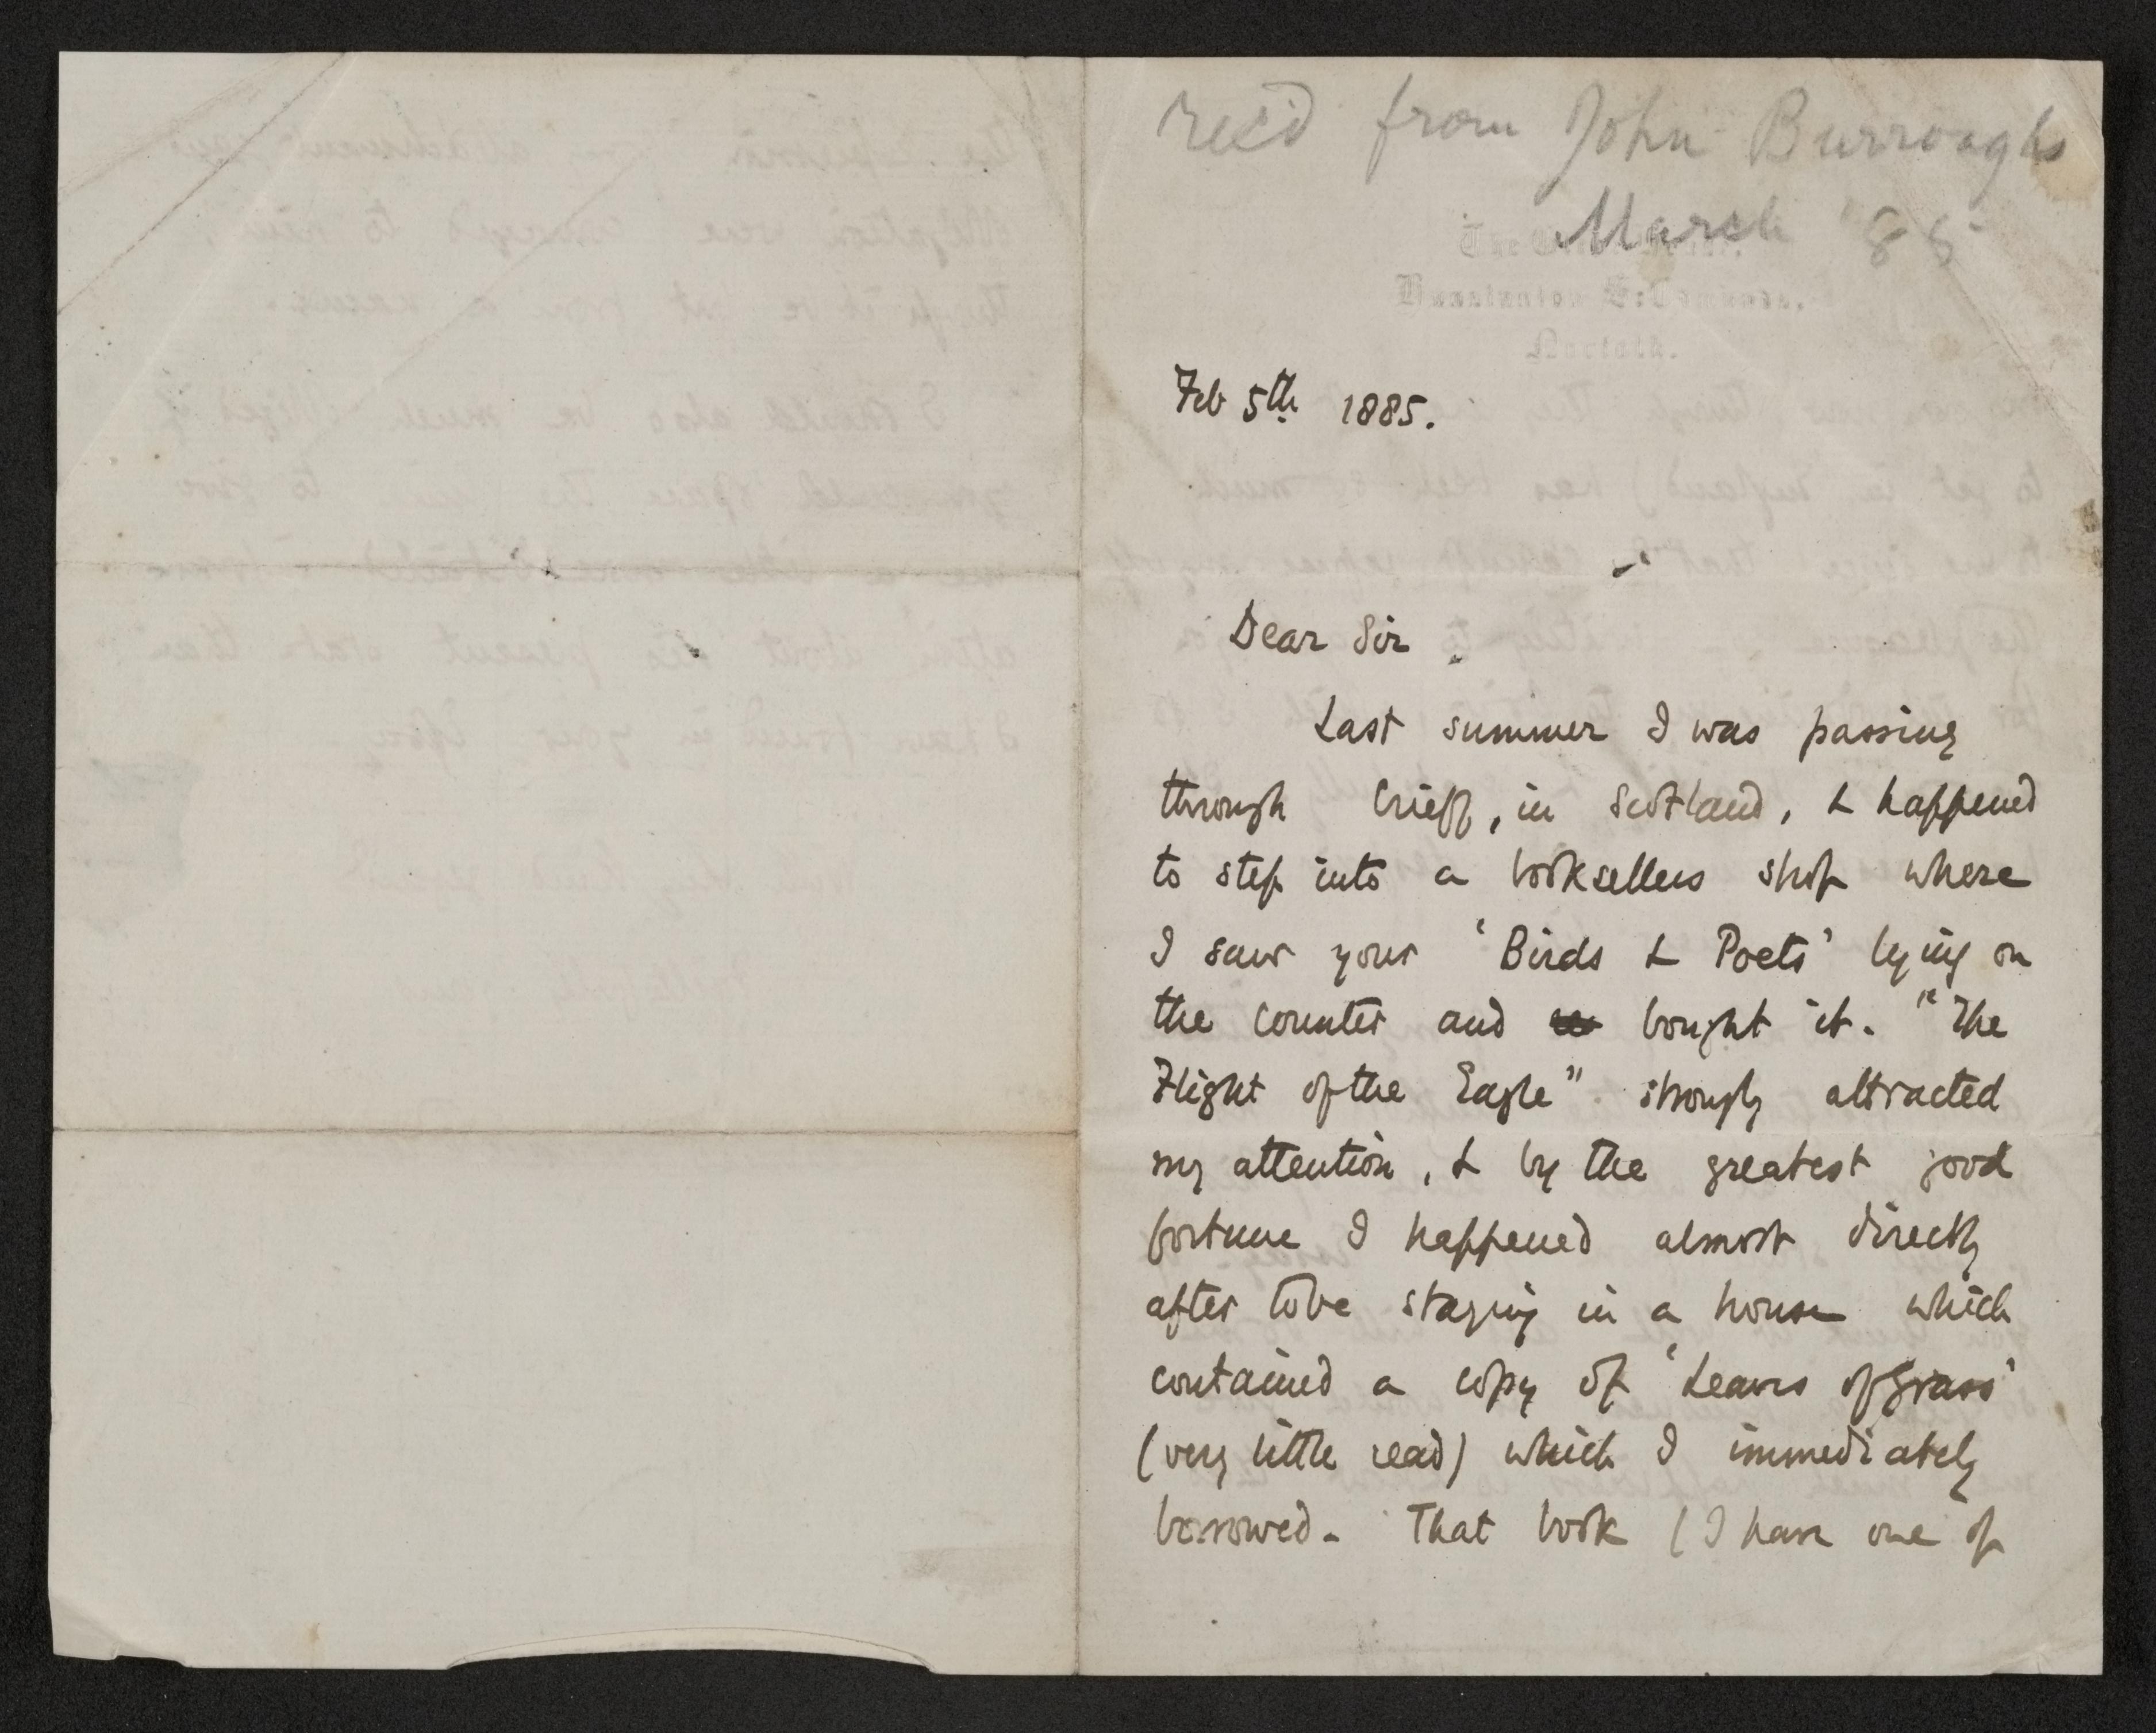 rec'd from John Burroughs
March '85
The
Hunstanton St. Edmunds.
Norfolk.
Feb 5th 1885.
Dear Sir
Last summer I was passing
through Crieff, in Scotland, & happened
to step into a booksellers shop where
I saw your 'Birds & Poets' lying on
the counter and bought it. "The
Flight of the Eagle" strongly attracted
my attention, & by the greatest good
fortune I happened almost directly
after to be staying in a house which
contained a copy of 'Leaves of Grass'
(very little read) which I immediately
borrowed. That book (I have one of